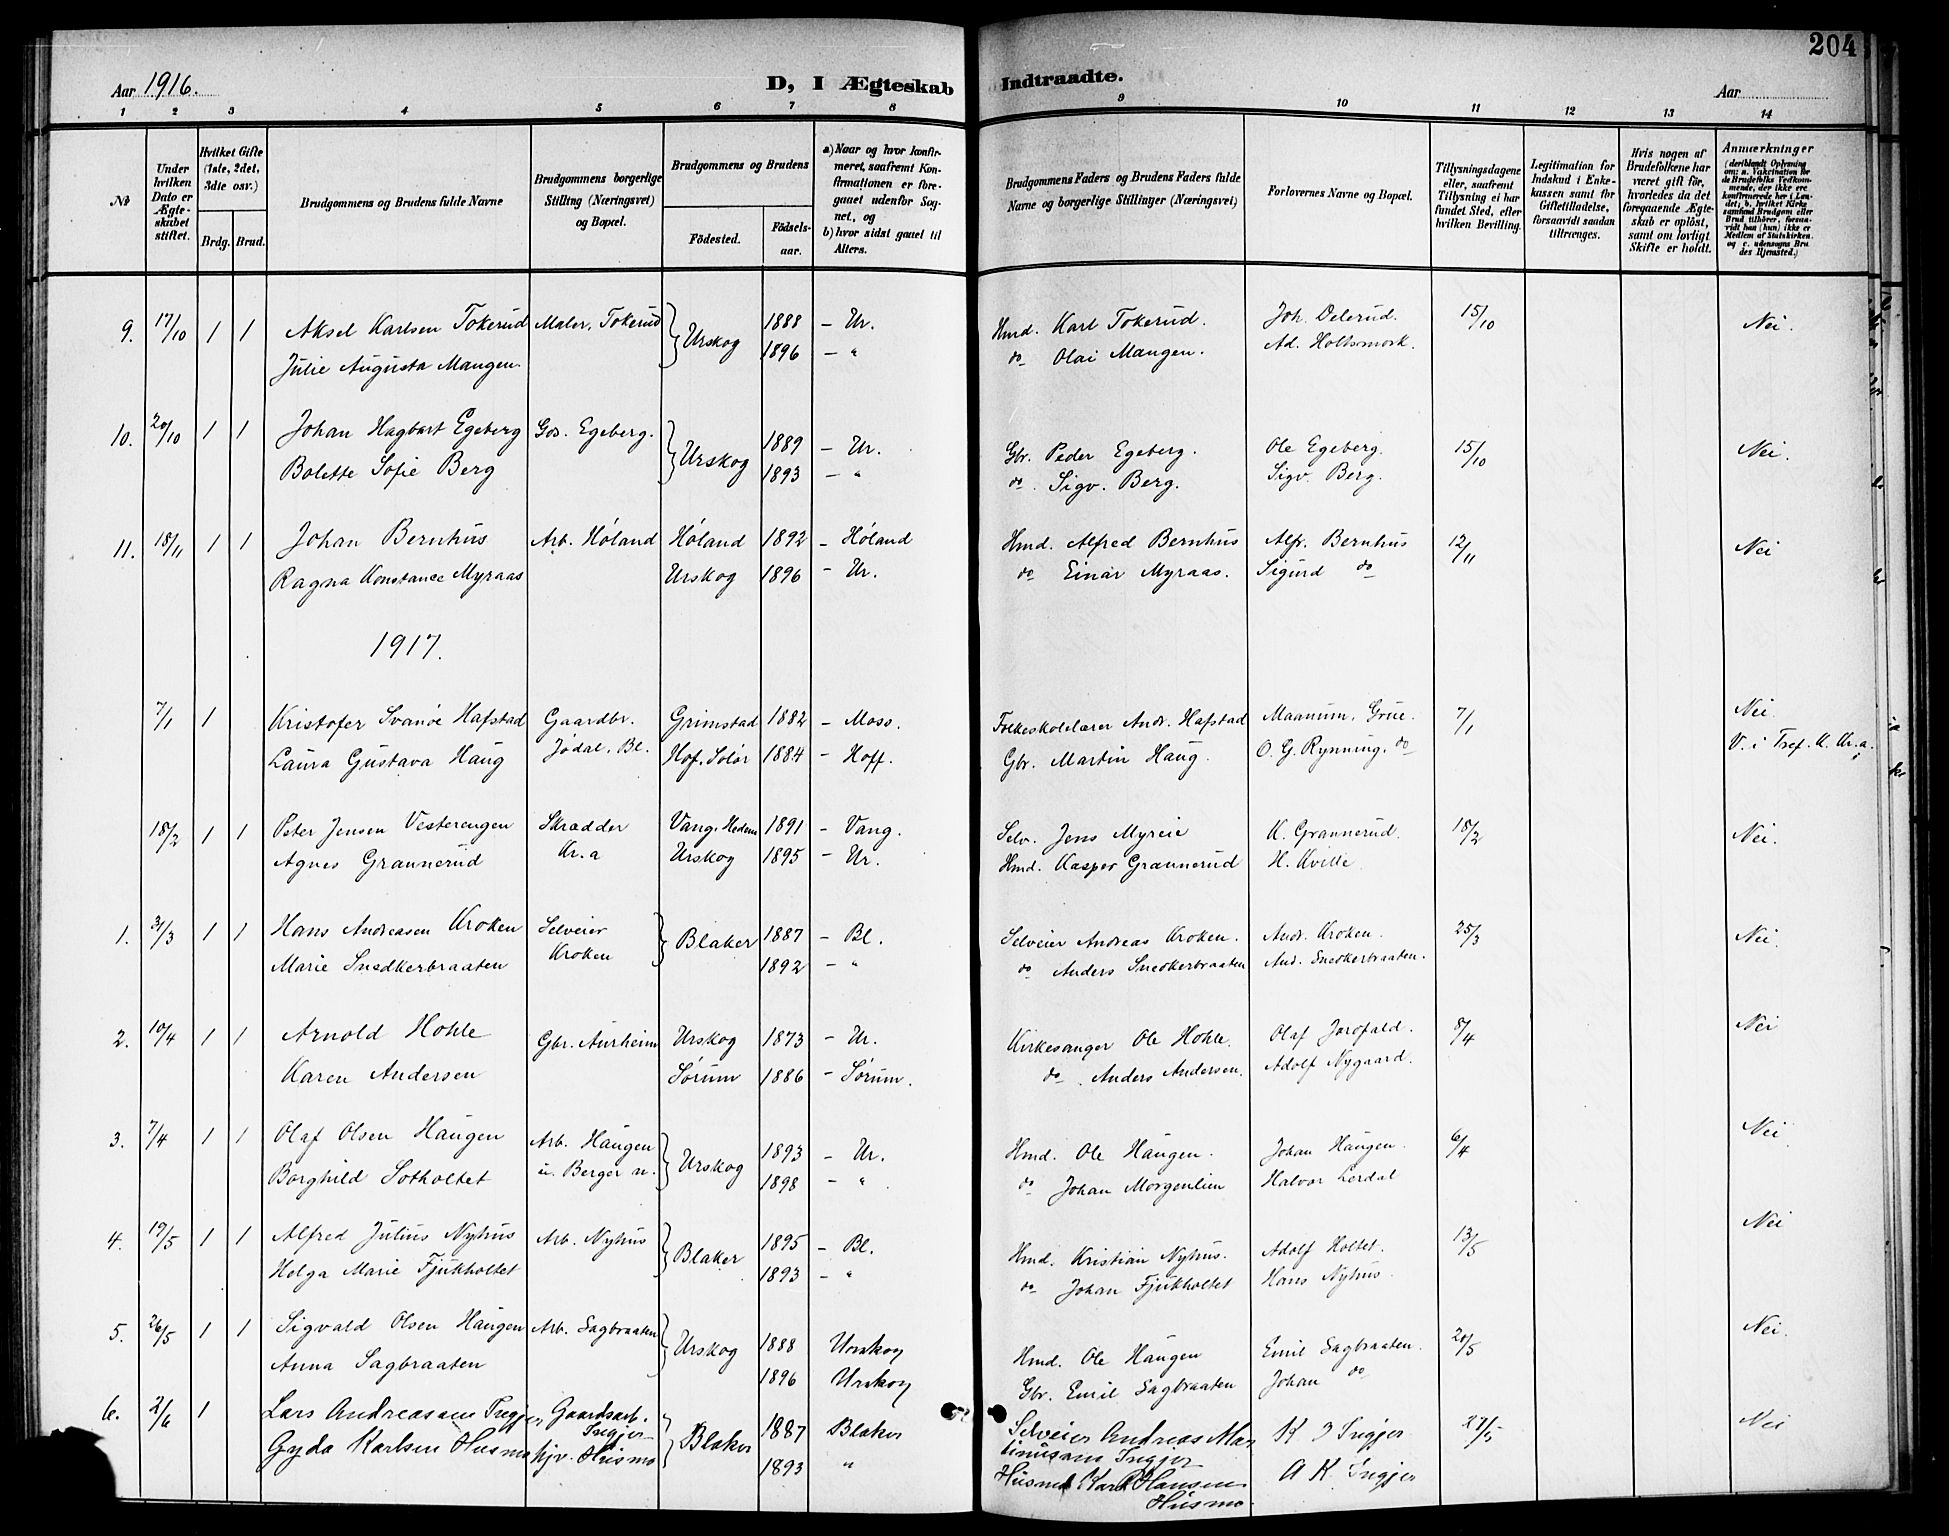 204
Aar 1916.
D, I Ægteskab Indtraadte.
Aar
1 2 3 4 5 6 7 8 9 10 11 12 13 14
No
Under hvilken Dato er Ægteskabet stiftet.
Hvilket Gifte (1ste, 2det, 3die osv.)
Brdg. Brud.
Brudgommens og Brudens fulde Navne
Brudgommens borgerlige Stilling (Næringsvei) og Bopæl.
Brudgommens og Brudens
Fødested. Fødselsaar.
a) Naar og hvor konfirmeret, saafremt Konfirmationen er foregaaet udenfor Sognet, og
b) hvor sidst gaaet til Alters.
Brudgommens Faders og Brudens Faders fulde Navne og borgerlige Stillinger (Næringsvei)
Forlovernes Navne og Bopæl.
Tillysningsdagene eller, saafremt Tillysning ei har fundet Sted, efter hvilken Bevilling.
Legitimation for Indskud i Enkekassen samt for Giftetilladelse, forsaavidt saadan tiltrænges.
Hvis nogen af Brudefolkene har været gift før, hvorledes da det foregaaende Ægteskab er opløst, samt om lovligt Skifte er holdt.
Anmærkninger
(deriblandt Oplysning om: a. Vakcination for de Brudefolks Vedkommende, der ikke ere konfirmerede her i Landet; b. hvilket Kirkesamfund Brudgom eller Brud tilhører, forsaavidt han (hun) ikke er Medlem af Statskirken, og c. udensogns Brudes Hjemsted.)
9. 17/10 1 1 Aksel Karlsen Tokerud Maler, Tokerud } Urskog 1888 – Ur. Hmd. Karl Tokerud. Joh. Delerud. 15/10 Nei.
Julie Augusta Mangen. 1896 – " do Olai Mangen. Ad. Holtsmork.
10. 20/10 1 1 Johan Hagbart Egeberg Gos. Egeberg. } Urskog 1889 – Ur. Gbr. Peder Egeberg. Ole Egeberg. 15/10 Nei.
Bolette Sofie Berg 1893 – " do. Sigv. Berg. Sigv. Berg.
11. 18/11 1 1 Johan Bernhus Arb. Høland Høland 1892 – Høland Hmd. Alfred Bernhus Alfr. Bernhus 12/11 Nei
Ragna Konstance Myraas Urskog 1896 – Ur. do Einar Myraas. Sigurd do
1917.
7/1 1 Kristofer Svanøe Hafstad Gaardbr. Grimstad 1882 – Moss. Folkeskolelærer Andr. Hafstad Maanum, Grue. 7/1 Nei.
Laura Gustava Haug Jødal, Bl. Hof, Solør 1884 – Hoff. Gbr. Martin Haug. O. G. Rynning. do V. i Tref. K. Kr.a.
18/2 1 1 Peter Jensen Vesterengen Skrædder Vang, Hedem 1891 – Vang. Selv. Jens Myreie K. Grannerud. 18/2 Nei.
Agnes Grannerud Kr.a Urskog 1895 – Ur. Hmd. Kasper Grannerud H. Kville
1. 31/3 1 1 Hans Andreasen Kroken Selveier } Blaker 1887 – Bl. Selveier Andreas Kroken. Andr. Kroken. 25/3 Nei.
Marie Snedkerbraaten Kroken 1892 – " do Anders Snedkerbraaten And. Snedkerbraaten.
2. 10/4 1 1 Arnold Hohle Gbr. Aurheim Urskog 1873 – Ur. Kirkesanger Ole Hohle. Olaf Jarofald. 8/4 Nei
Karen Andersen Sørum 1886 – Sørum. do. Anders Andersen. Adolf Nygaard.
3. 7/4 1 1 Olaf Olsen Haugen Arb. Haugen } Urskog 1893 – Ur. Hmd. Ole Haugen. Johan Haugen. 6/4 Nei.
Borghild Sotholtet u. Berger n. 1898 – ". do Johan Morgenlien Halvor Lerdal
4. 19/5 1 1 Alfred Julius Nyhus Arb. Nyhus } Blaker 1895 – Bl. Hmd. Kristian Nyhus. Adolf Holtet. 13/5 Nei
Helga Marie Fjukholtet 1893 – " do Johan Fjukholtet Hans Nyhus.
5. 26/5 1 1 Sigvald Olsen Haugen Arb. Sagbraaten } Urskog 1888 Urskog Hmd. Ole Haugen Emil Sagbraaten. 20/5 Nei.
Anna Sagbraaten 1896 Urskog Gbr. Emil Sagbraaten Johan do
6. 2/6 1 Lars Andreassen Ingjer Gaardsarb. Ingjer } Blaker 1887 Blaker Selveier Andreas Martinussen Ingjer K J Ingjer 27/5 Nei
Gyda Karlsen Husmo hjv. Husmo 1893 " Husmd Karl Hansen Husmo A K. Ingjer